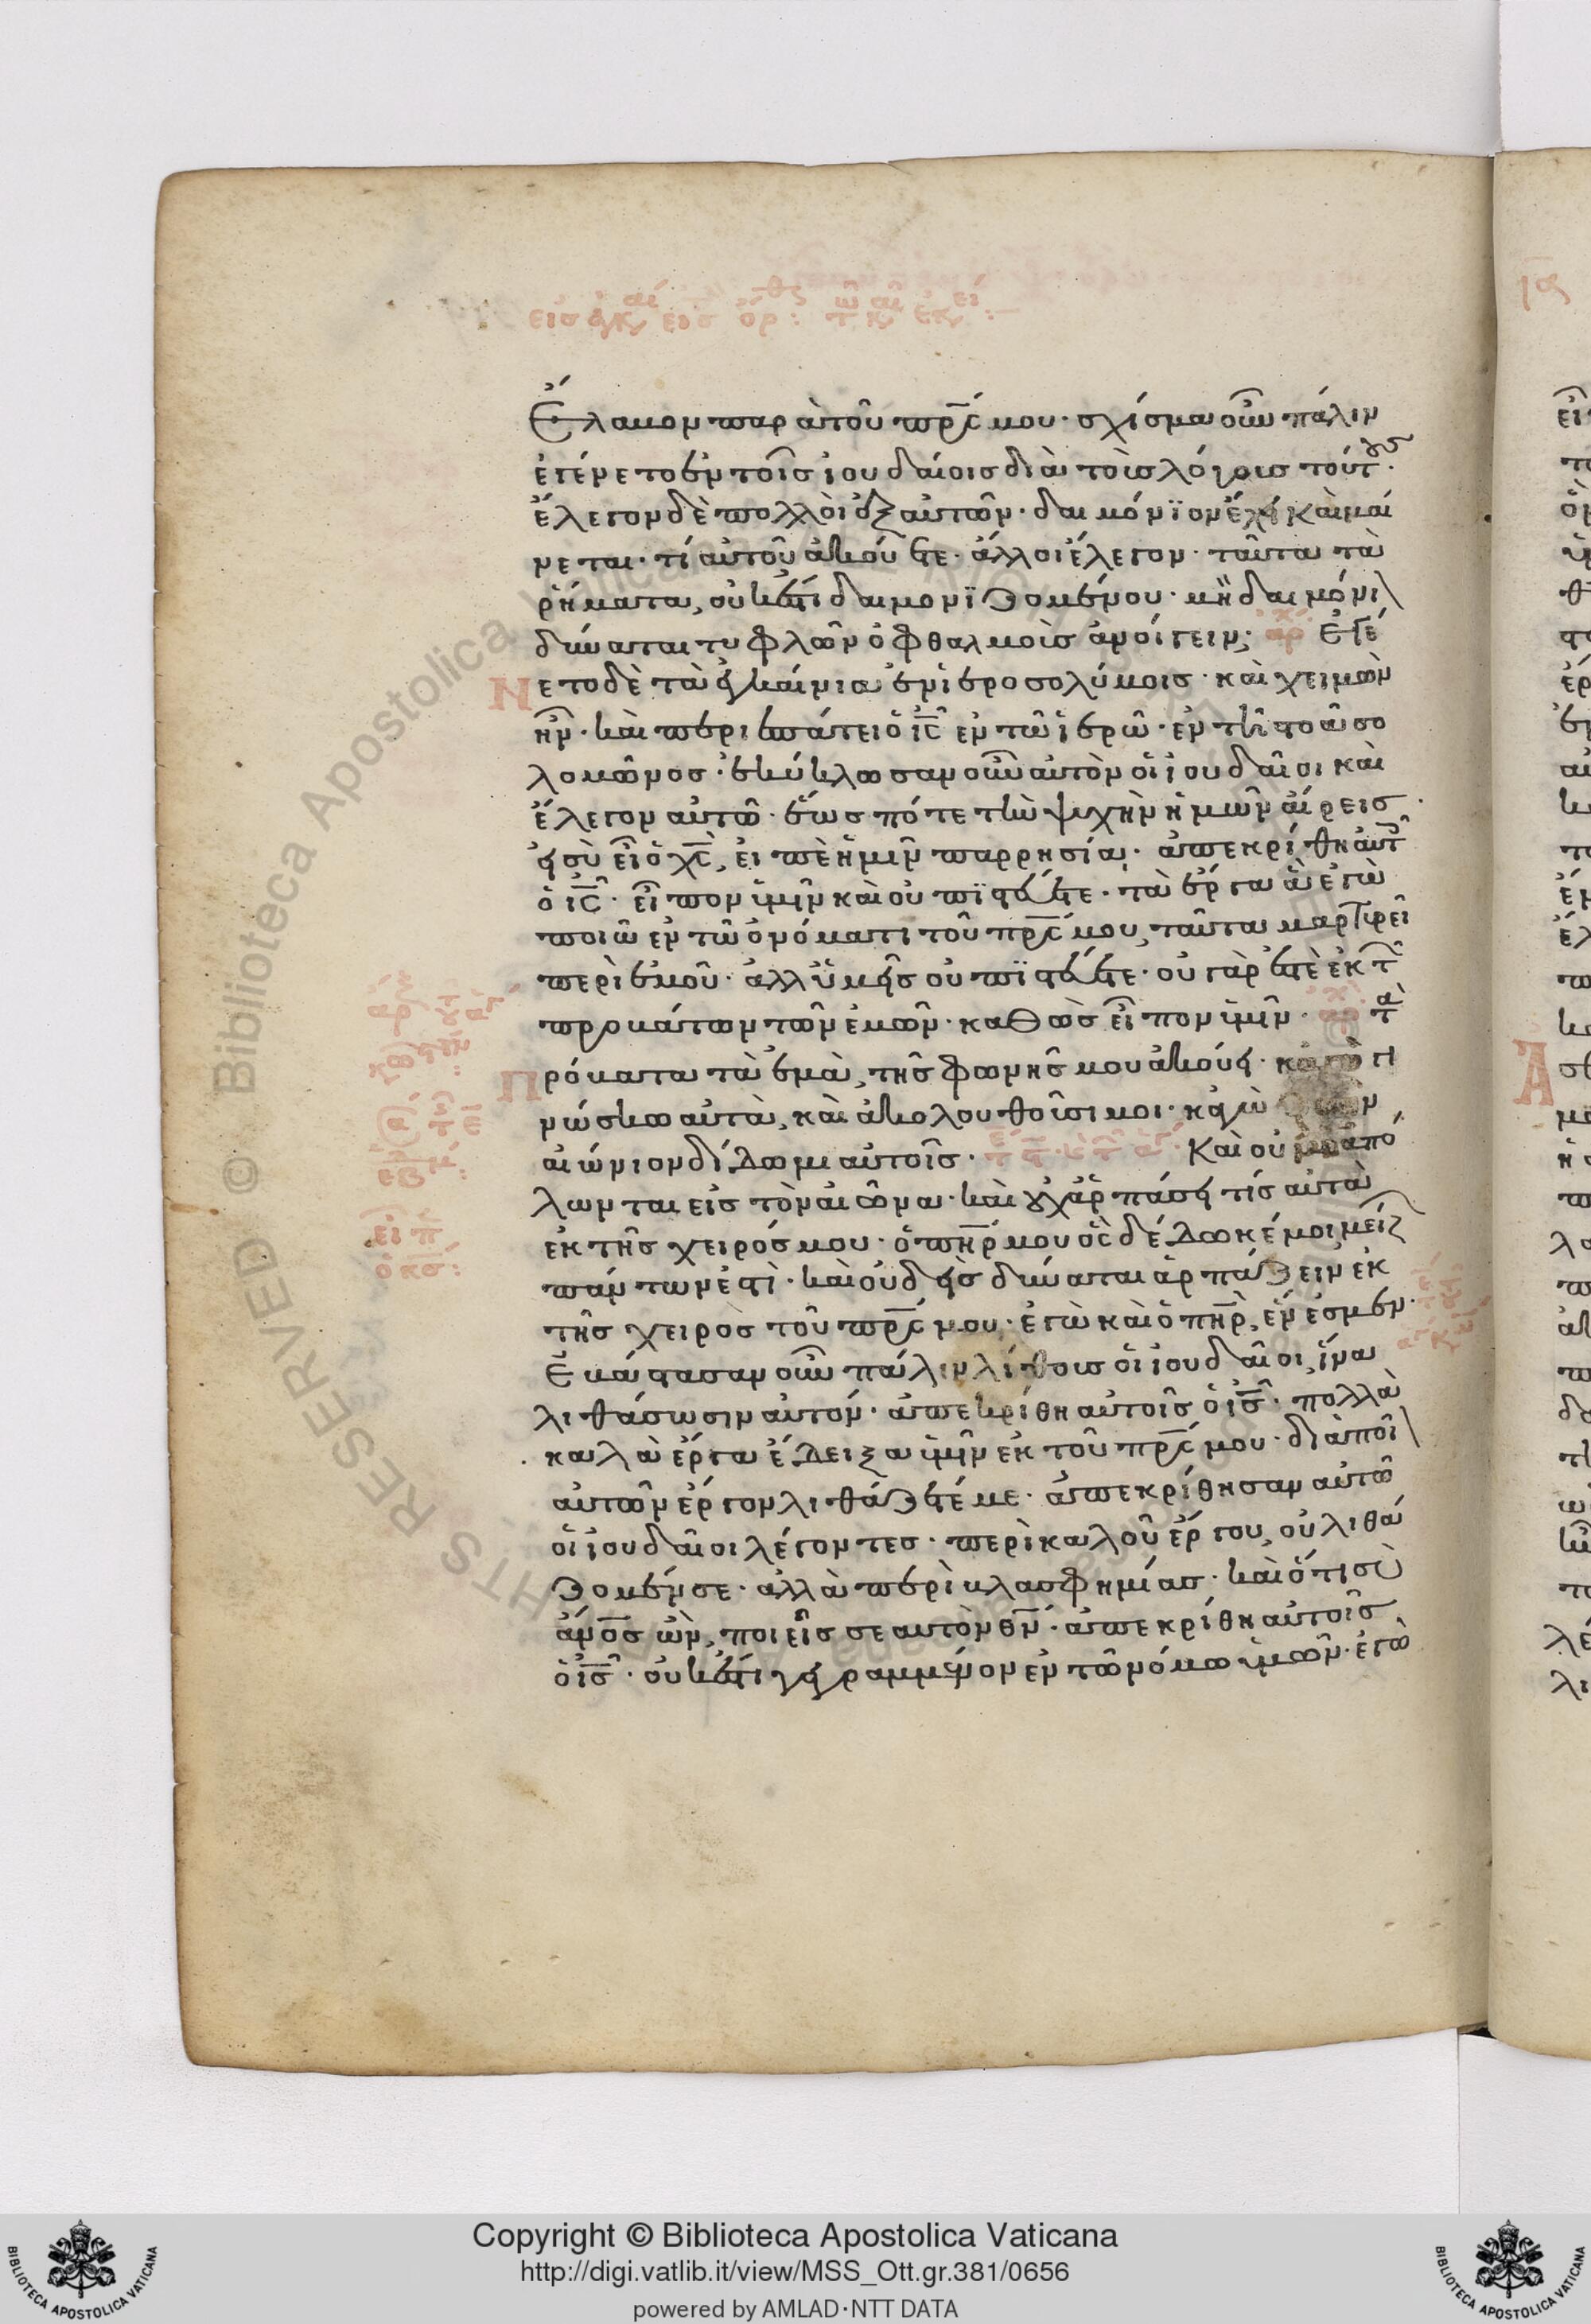 Ἔλαβον παρὰ τοῦ πρς μου· σχίσμα οὖν πάλιν
ἐγένετο ἐν τοῖς ἰουδαίοις διὰ τοὺς λόγους τούτους·
ἔλεγον δὲ πολλοὶ ἐξ αὐτῶν· δαιμόνϊον ἔχει καὶ μαί
νεται· τί αὐτοῦ ἀκούετε· ἄλλοι ἔλεγον· ταῦτα τὰ
ῥήματα, οὐκ ἔστι δαιμονϊζομένου· μὴ δαιμόνι
δύναται τυφλῶν ὀφθαλμοὺς ἀνοίγειν; Ἐγέ
Νετο δὲ τὰ ἐγκαίνια ἐν ἱεροσολύμοις· καὶ χειμὼν
ἦν· καὶ περιεπάτει ὁ ις ἐν τῷ ἱερῷ· ἐν τῇ στοᾷ σο
λομῶνος· ἐκύκλωσαν οὖν αὐτὸν οἱ ἰουδαῖοι καὶ
ἔλεγον αὐτῷ· ἕως πότε τὴν ψυχὴν ἡμῶν αἴρεις·
εἰ σὺ εἶ ὁ χς, εἰπὲ ἡμῖν παρρησίᾳ· ἀπεκρίθη αὐτ
ὁ ις· εἶπον ὑμῖν καὶ οὐ πϊστεύετε· τὰ ἔργα ἃ ἐγὼ
ποιῶ ἐν τῷ ὀνόματι τοῦ πρς μου, ταῦτα μαρτυρεῖ
περὶ ἐμοῦ· ἀλλ' ὑμεῖς οὐ πϊστεύετε· οὐ γάρ ἐστὲ ἐκ τ
προβάτων τῶν ἐμῶν· καθὼς εἶπον ὑμῖν· τὰ
Πρόβατα τὰ ἐμὰ, τῆς φωνῆς μου ἀκούει· κἀγὼ γι
νώσκω αὐτὰ, καὶ ἀκολουθοῦσι μοι· κἀγὼ
αἰώνιον δίδωμι αὐτοῖς· Καὶ οὐ μὴ ἀπό
λωνται εἰς τὸν αἰῶνα· καὶ οὐχ ἁρπάσει τίς αὐτὰ
ἐκ τῆς χειρός μου· ὁ πηρ μου ὃς δέδωκέ μοι μείζ
πάντων ἐστὶ· καὶ οὐδεὶς δύναται ἁρπάζειν ἐκ
τῆς χειρὸς τοῦ πρς μου· ἐγὼ καὶ ὁ πηρ, ἕν ἐσμεν·
Ἐβάστασαν οὖν πάλιν λίθους οἱ ἰουδαῖοι, ἵνα
λιθάσωσιν αὐτόν· ἀπεκρίθη αὐτοῖς ὁ ις· πολλὰ
καλὰ ἔργα ἔδειξα ὑμῖν ἐκ τοῦ πρς μου· διὰ ποῖ
αὐτῶν ἔργον λιθάζετέ με· ἀπεκρίθησαν αὐτῷ
οἱ ἰουδαῖοι λέγοντες· περὶ καλοῦ ἔργου, οὐ λιθά
ζομέν σε· ἀλλὰ περὶ βλασφημίας· καὶ ὅτι σὺ
ἀνος ὢν, ποιεῖς σεαυτὸν θν· ἀπεκρίθη αὐτοῖς
ὁ ις· οὐκ ἔστι γεγραμμένον ἐν τῷ νόμῳ ὑμῶν· ἐγὼ
Copyright © Biblioteca Apostolica Vaticana
http://digi.vatlib.it/view/MSS_Ott.gr.381/0656
powered by AMLAD·NTT DATA
BIBLIOTECA APOSTOLICA VATICANA
BIBLIOTECA APOSTOLICA VATICANA